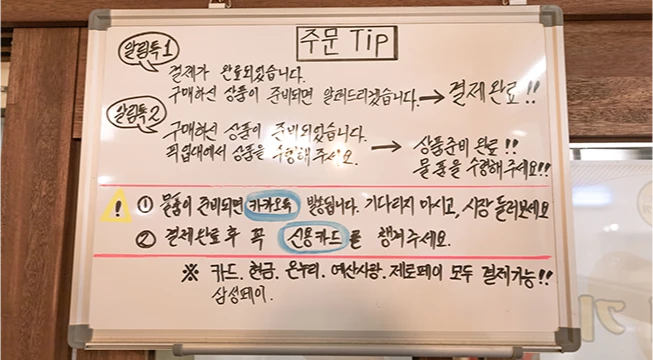 주문 Tip
알림톡1
결제가 완료되었습니다.
구매하신 상품이 준비되면 알려드리겠습니다. → 결제완료!!
알림톡2
구매하신 상품이 준비되었습니다.
픽업대에서 상품을 수령해 주세요. → 상품준비 완료!!
물품을 수령해주세요!!
! ① 물품이 준비되면 카카오톡 발송됩니다. 기다리지 마시고, 시장 둘러보세요
② 결제완료 후 꼭 신용카드를 챙겨주세요.
※ 카드. 현금. 온누리. 예산사랑. 제로페이 모두 결제가능!!
삼성페이.